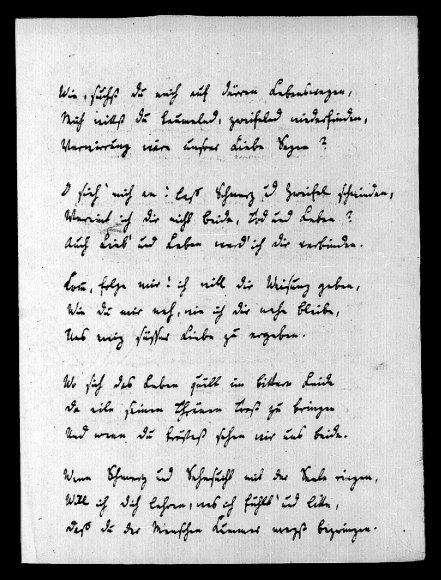 Wie, suchst du mich auf dürren Lebenswegen,
Mich willst du taumelnd, zweifelnd niederfinden,
Verwirrung wäre unsrer Liebe Segen?
O sieh' mich an! laß Schmerz und Zweifel schwinden,
Vereint ich dir nicht beide, Tod und Leben?
Auch Lieb' und Leben werd' ich dir verbinden.
Komm, folge mir! ich will dir Weisung geben,
Wie du mir nah, wie ich dir nahe bleibe,
Uns ewig süsser Liebe zu ergeben.
Wo sich das Leben quält im bittern Leide
Da eile seinen Thränen Trost zu bringen
Und wenn du tröstest sehen wir uns beide.
Wenn Schmerz und Sehnsucht mit der Seele ringen,
Will ich dich lehren, was ich fühlt' und litte,
Daß du der Menschen Kummer magst bezwingen.